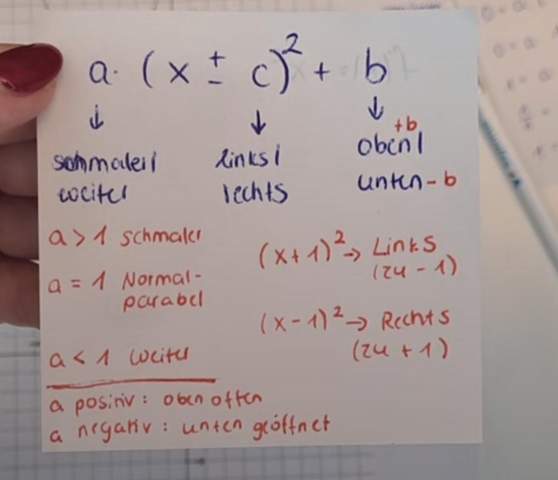 a · (x ± c)² + b
↓ ↓ ↓
schmaler/ links/ oben/ +b
weiter rechts unten - b
a > 1 schmaler
(x+1)² → Links
(zu - 1)
a = 1 Normal-
parabel
(x-1)² → Rechts
(zu + 1)
a < 1 weiter
a positiv: oben offen
a negativ: unten geöffnet